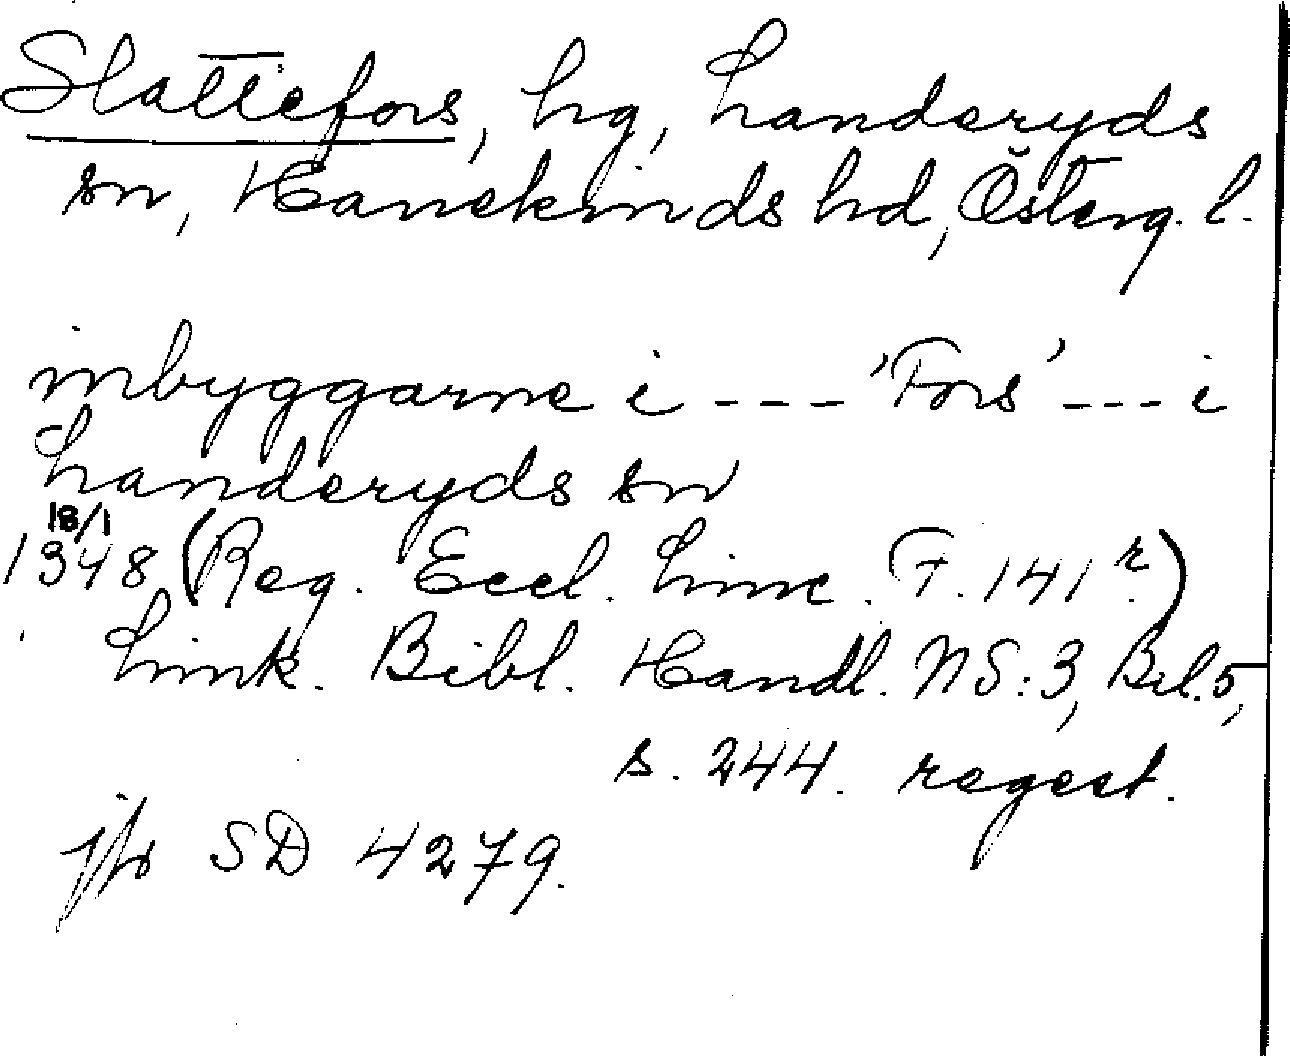 Slattefors, hg, Landeryds
sn, Hanekinds hd, Österg. l.
inbyggarne i --- 'Fors' --- i
Landeryds sn
18/1
1348 (Reg. Eccl. Linc. F. 141 r.)
Link. Bibl. Handl. NS:3, Bil. 5,
s. 244. regest.
jfr SD 4279.